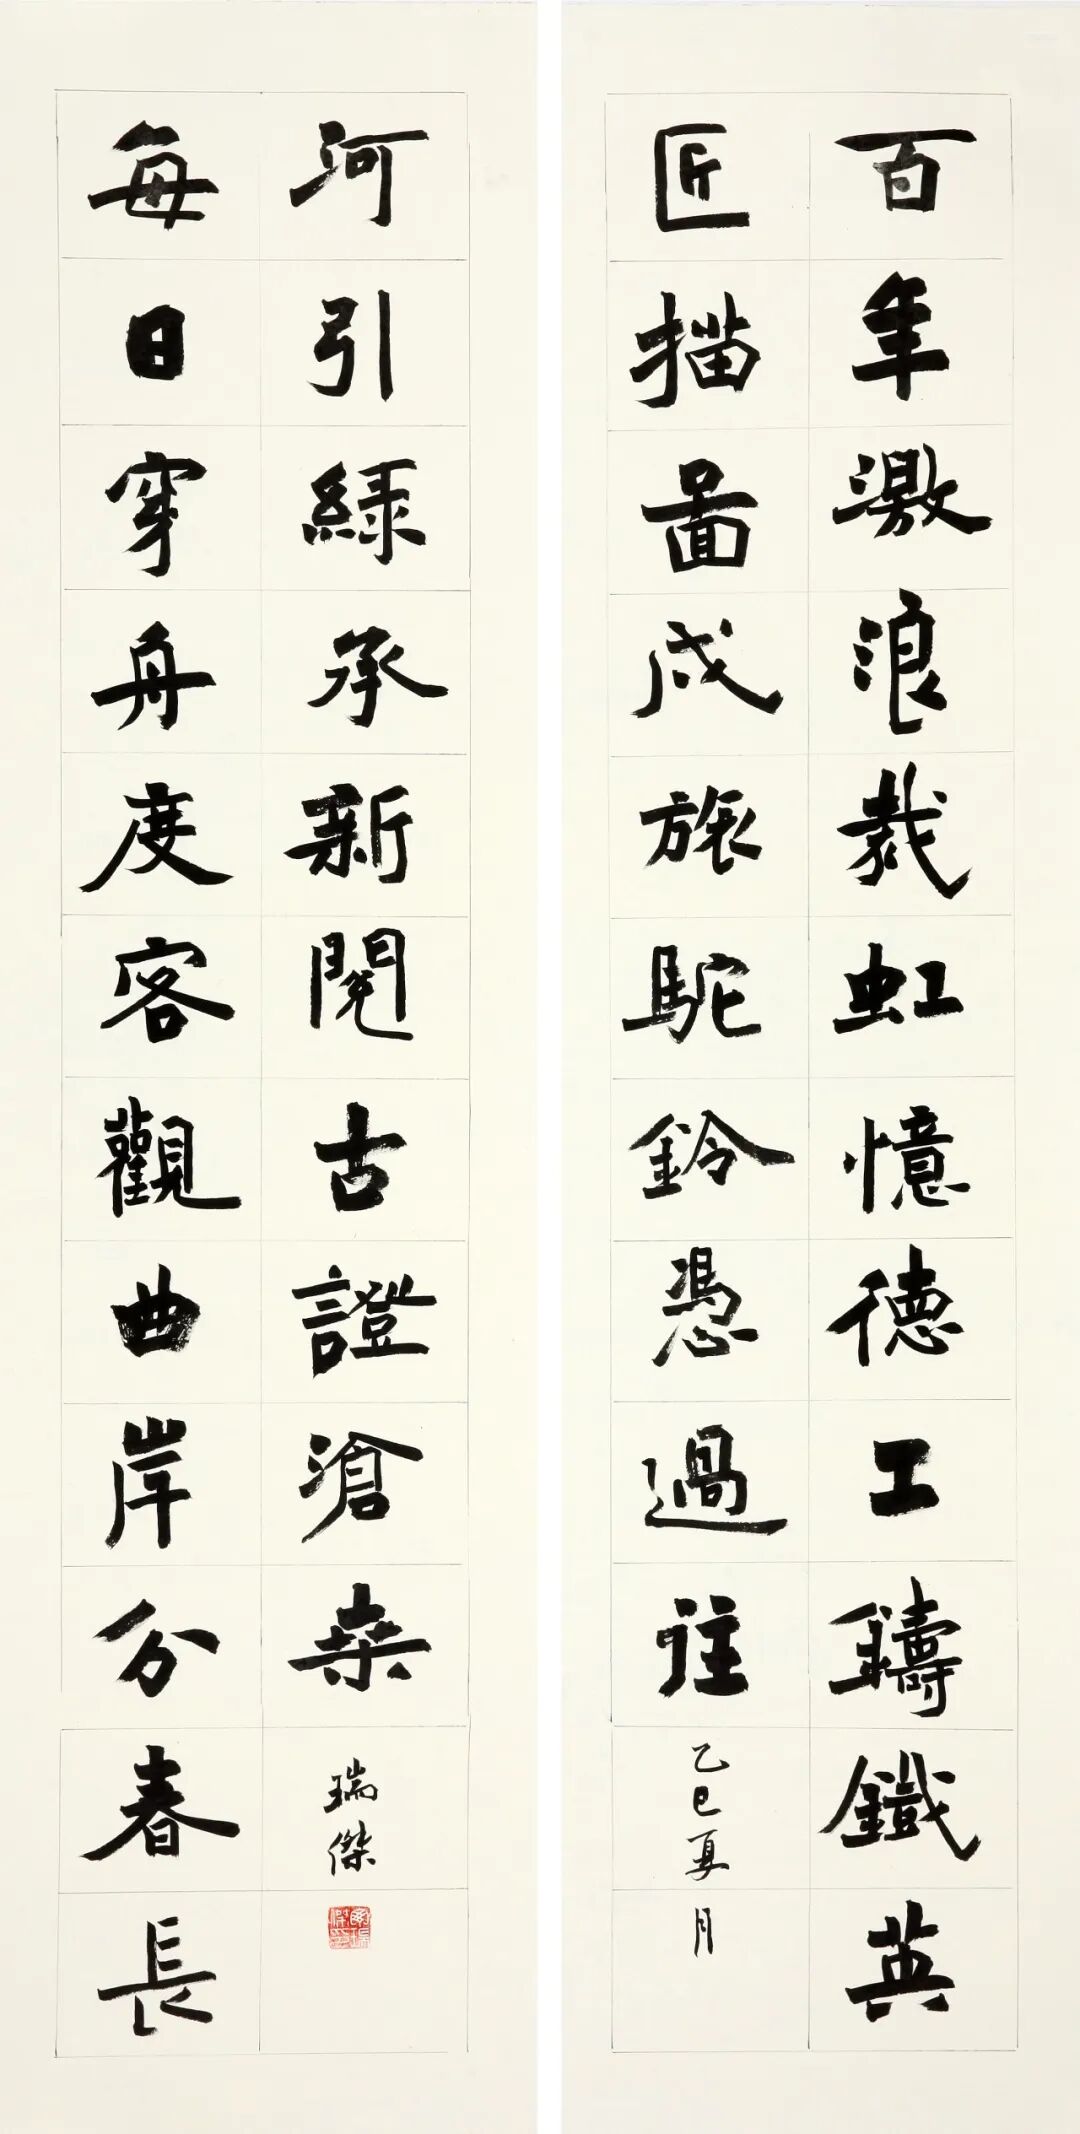 百年激浪裁虹憶德工鑄鐵英
匠描圖成旅駝鈴憑過往
乙巳夏月
每日穿舟度客觀曲岸分春長
河引綠承新閱古證滄桑
瑞傑